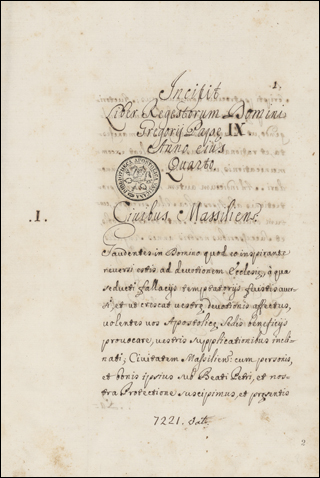 1.
Incipit
Liber Regestorum Domini
Gregorij Papę IX
Anno eius
Quarto.
.I. Ciuibus Massilien:
Gaudentes in Domino quod eo inspirante
reuersi estis ad deuotionem Ecclesię, à qua
seducti fallacijs temptatorijs fuistis auer-
si, et ut crescat uestrę deuotionis affectus,
uolentes uos Apostolicę Sedis beneficijs
prouocare, uestris supplicationibus incli-
nati, Ciuitatem Massilien: cum personis,
et bonis ipsius sub Beati Petri, et nos-
tra Protectione suscipimus, et presentis
7221.
2